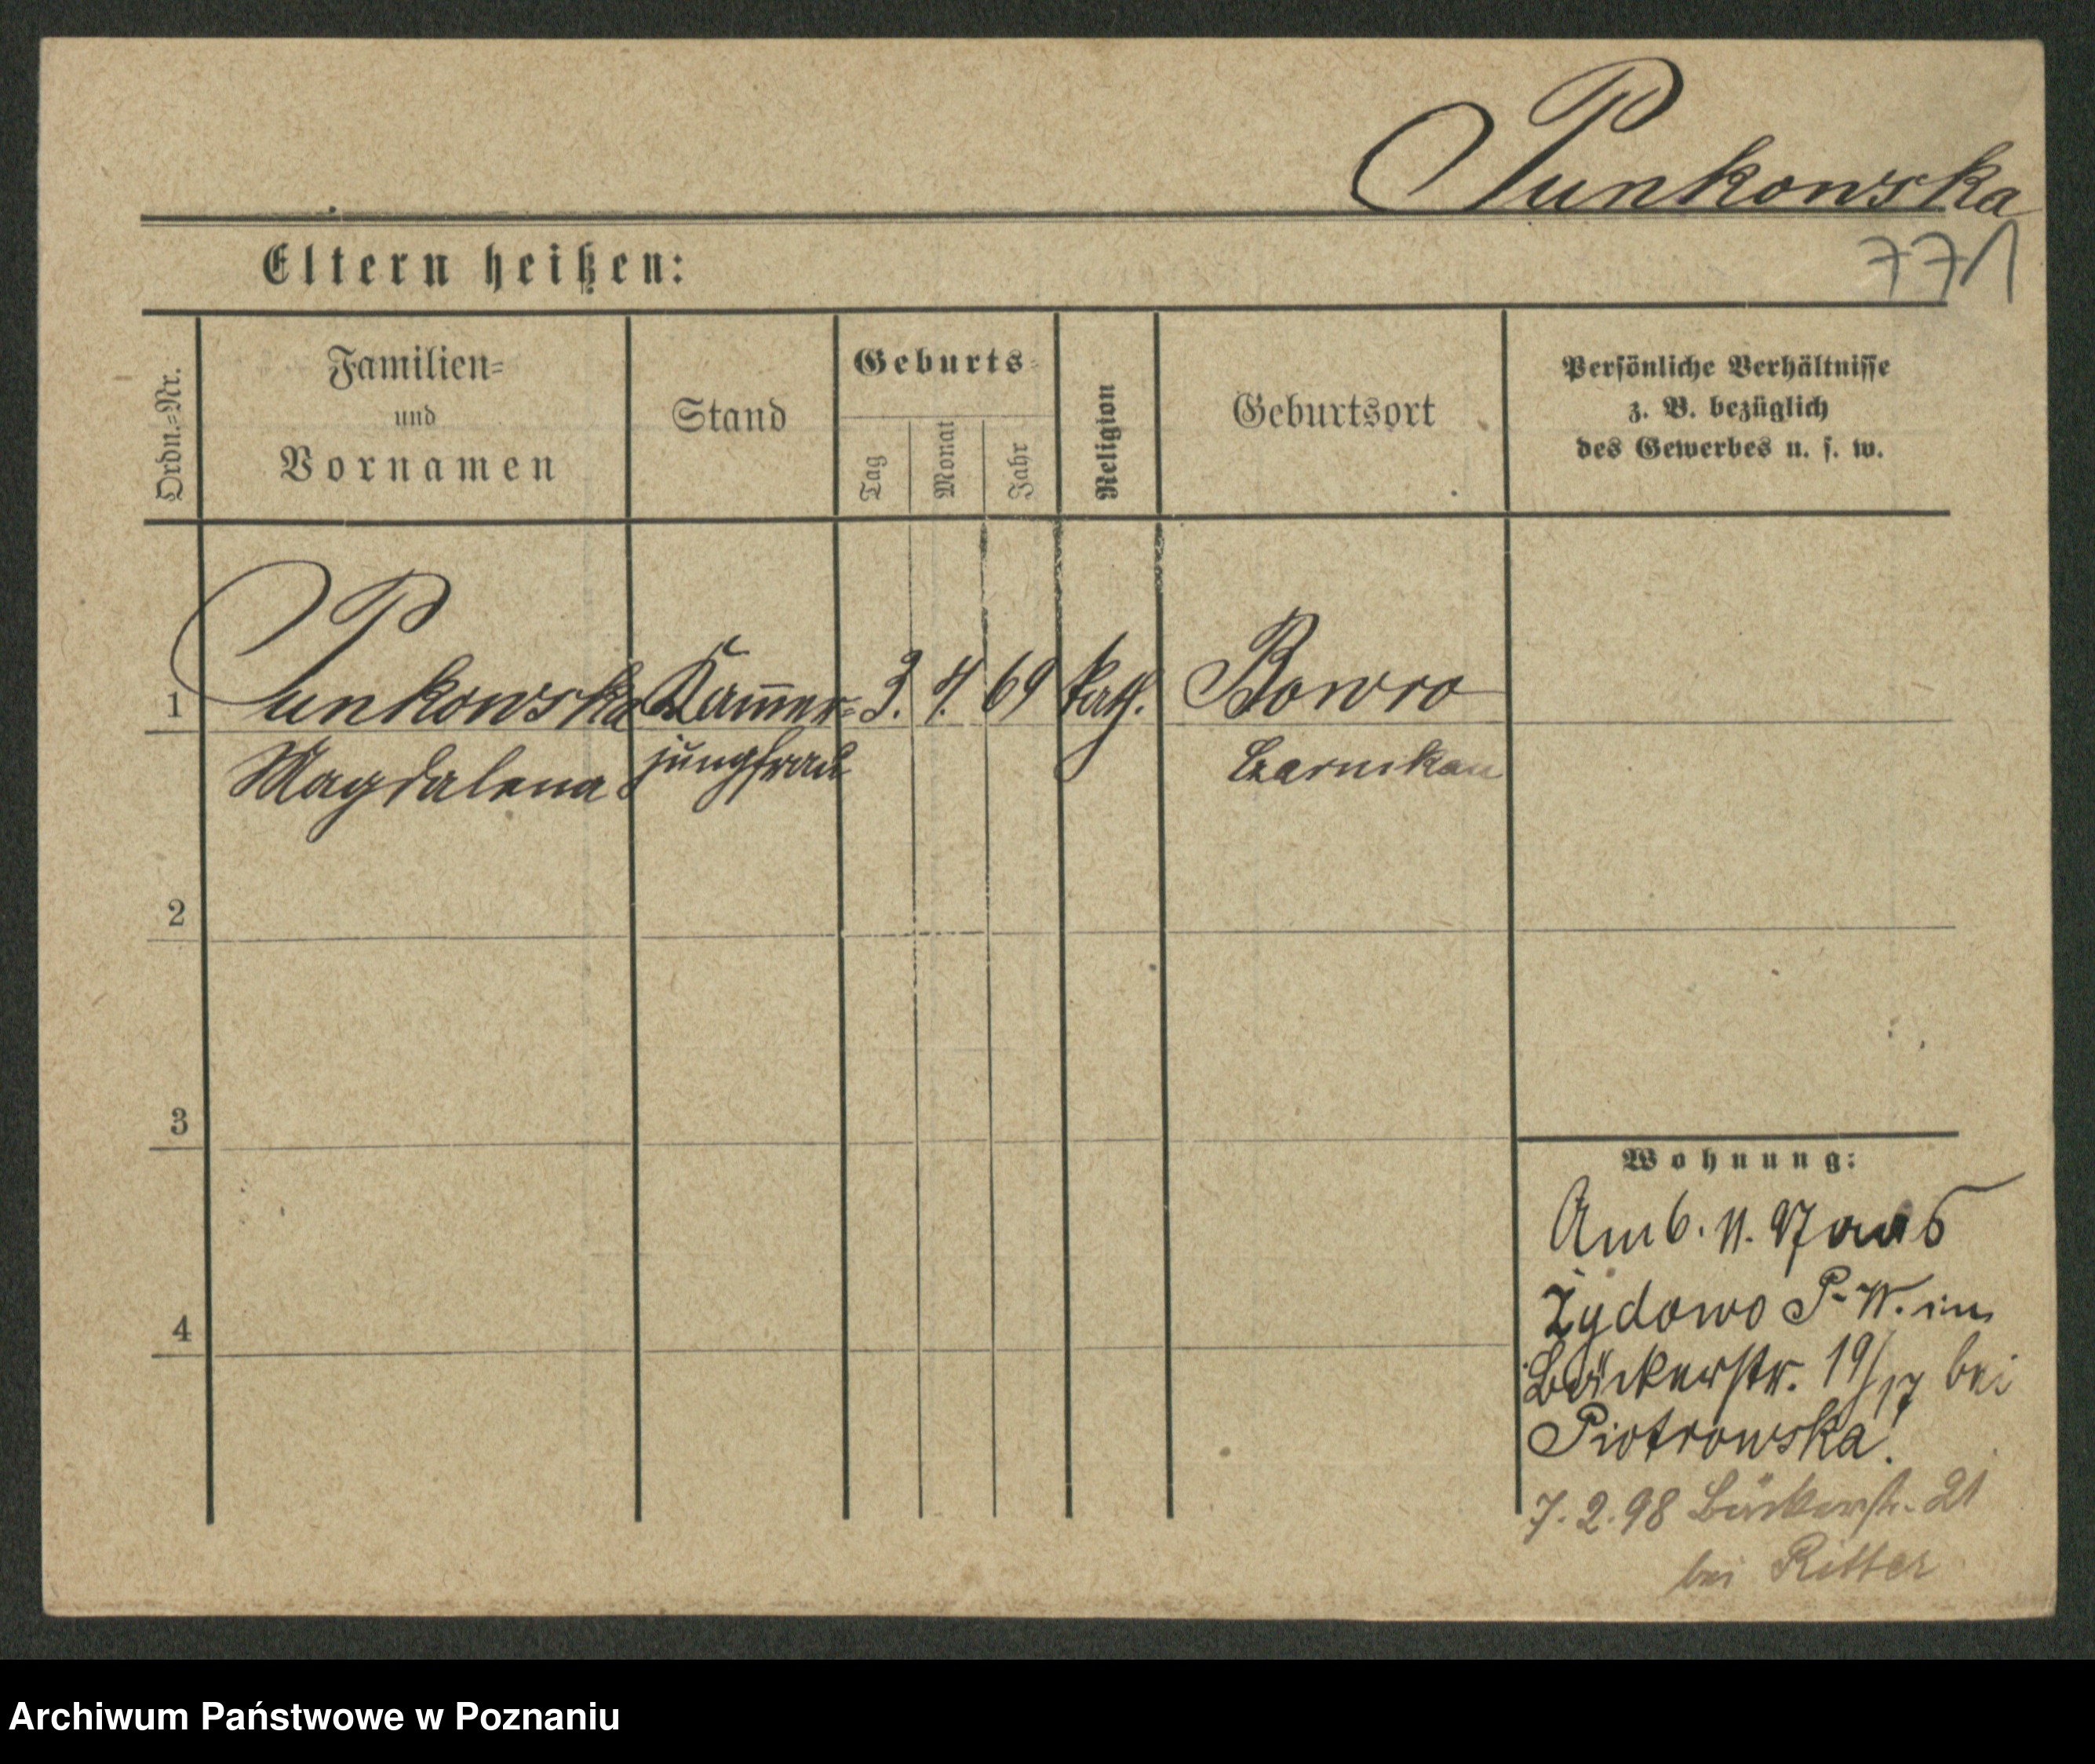 Punkowska
771
Eltern heißen:
Ordn.=Nr.
Familien=
und
Vornamen
Stand
Geburts=
Tag
Monat
Jahr
Religion
Geburtsort
Persönliche Verhältnisse
z. B. bezüglich
des Gewerbes u. s. w.
1
Punkowska Kam̅er= 3. 4. 69 kath. Bowro
Magdalena jungfrau Czarnikau
2
3
4
Wohnung:
Am 6. 11. 97 aus
Żydowo P. W. in
Bäckerstr. 19/17 bei
Piotrowska!
7. 2. 98 Bäckerstr. 21
bei Ritter
Archiwum Państwowe w Poznaniu